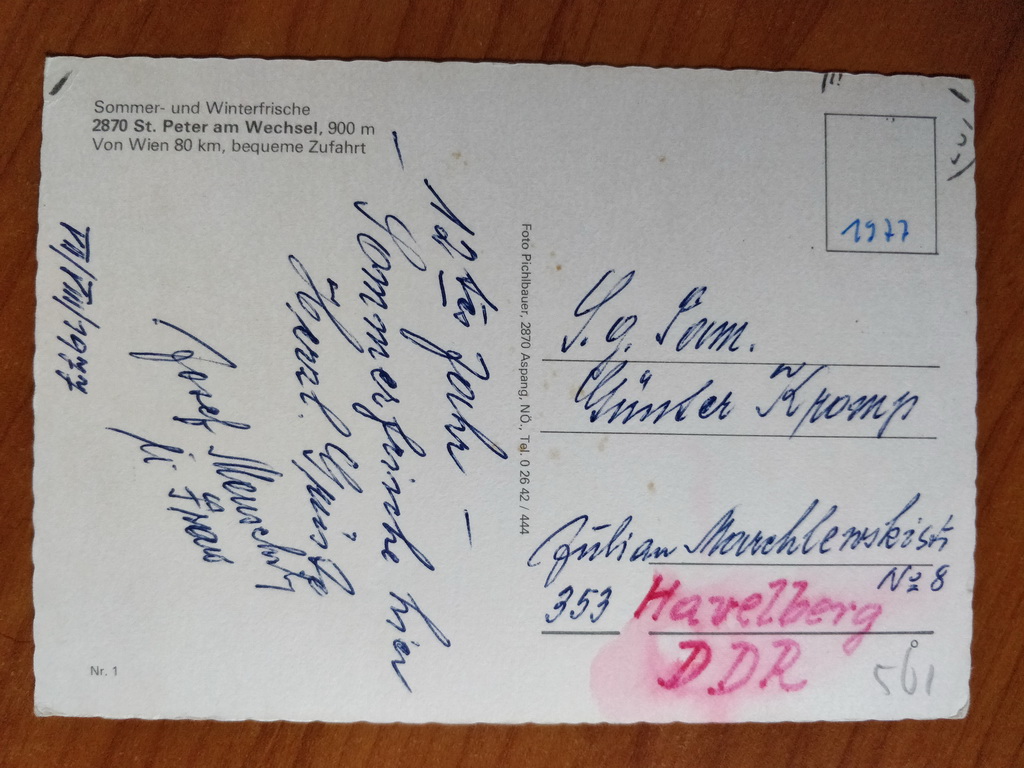 Sommer- und Winterfrische
2870 St. Peter am Wechsel, 900 m
Von Wien 80 km, bequeme Zufahrt
- 12tes Jahr -
Sommerfrische hier
Herzl. Grüsse
Josef
u Frau
VII/VIII/1977
Nr. 1
Foto Pichlbauer, 2870 Aspang, NÖ., Tel. 0 26 42 / 444
1977
S. g. Fam.
Günter Kromp
Julian Marchlewskistr
No 8
353 Havelberg
DDR
501